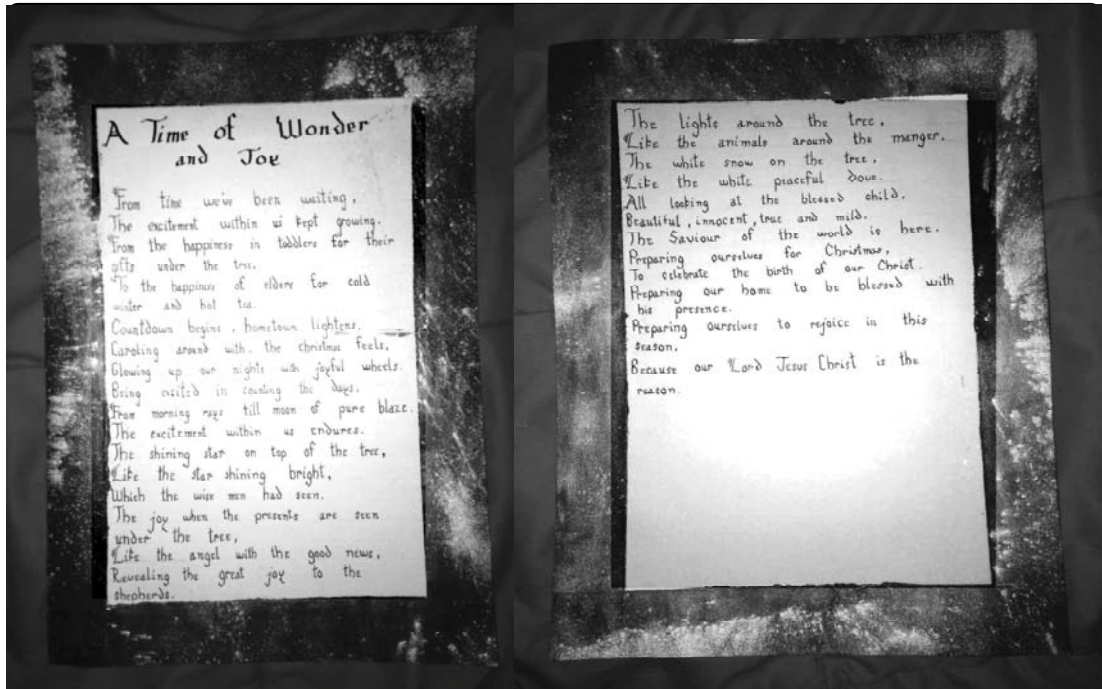 A Time of Wonder
and Joy
From time we've been waiting,
The excitement within us kept growing.
From the happiness in toddlers for their
gifts under the tree,
To the happiness of elders for cold
winter and hot tea.
Countdown begins, hometown lightens.
Caroling around with the christmas feels,
Glowing up our nights with joyful wheels.
Being excited in counting the days.
From morning rays till moon of pure blaze.
The excitement within us endures.
The shining star on top of the tree,
Like the star shining bright,
Which the wise men had seen.
The joy when the presents are seen
under the tree,
Like the angel with the good news,
Revealing the great joy to the
shepherds.
The lights around the tree,
Like the animals around the manger.
The white snow on the tree,
Like the white peaceful dove.
All looking at the blessed child.
Beautiful, innocent, true and mild.
The Saviour of the world is here.
Preparing ourselves for Christmas,
To celebrate the birth of our Christ.
Preparing our home to be blessed with
his presence.
Preparing ourselves to rejoice in this
season,
Because our Lord Jesus Christ is the
reason.